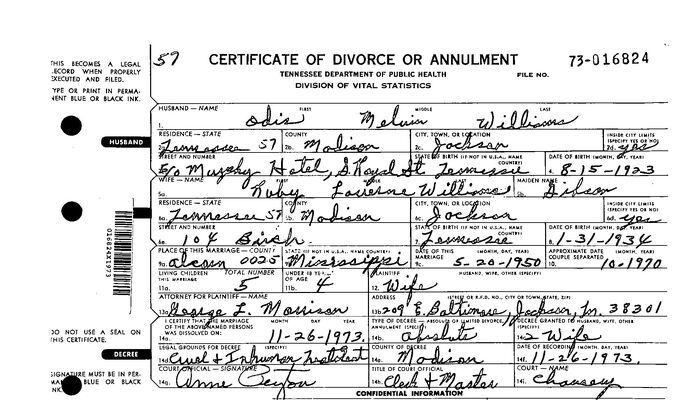 57 CERTIFICATE OF DIVORCE OR ANNULMENT 73-016824
TENNESSEE DEPARTMENT OF PUBLIC HEALTH FILE NO.
DIVISION OF VITAL STATISTICS
THIS BECOMES A LEGAL
RECORD WHEN PROPERLY
EXECUTED AND FILED.
TYPE OR PRINT IN PERMA-
NENT BLUE OR BLACK
INK.
HUSBAND — NAME FIRST MIDDLE LAST
1. Odis Melvin Williams
HUSBAND
RESIDENCE — STATE COUNTY CITY, TOWN, OR LOCATION INSIDE CITY LIMITS (SPECIFY YES OR NO)
Tennessee 57 2b. Madison 2c. Jackson 2d. yes
STREET AND NUMBER STATE OF BIRTH (IF NOT IN U.S.A., NAME COUNTRY) DATE OF BIRTH (MONTH, DAY, YEAR)
Murphy Hotel, S. Royal St Tennessee 4. 8-15-1923
WIFE — NAME FIRST MIDDLE LAST MAIDEN NAME
5a. Ruby Williams 5b. Gibson
RESIDENCE — STATE COUNTY CITY, TOWN, OR LOCATION INSIDE CITY LIMITS (SPECIFY YES OR NO)
6a. Tennessee 57 Madison 6c. Jackson 6d. yes
STREET AND NUMBER STATE OF BIRTH (IF NOT IN U.S.A., NAME COUNTRY) DATE OF BIRTH (MONTH, DAY, YEAR)
6e. 104 Birch 7. Tennessee 8. 1-31-1934
PLACE OF THIS MARRIAGE — COUNTY STATE (IF NOT IN U.S.A., NAME COUNTRY) DATE OF MARRIAGE (MONTH, DAY, YEAR) APPROXIMATE DATE COUPLE SEPARATED
9a. Alcorn 0025 Mississippi 9c. 5-20-1950 10. 10-1970
LIVING CHILDREN TOTAL NUMBER UNDER 18 YEARS OF AGE PLAINTIFF HUSBAND, WIFE, OTHER (SPECIFY)
11a. 5 11b. 4 12. Wife
ATTORNEY FOR PLAINTIFF — NAME ADDRESS (STREET OR R.F.D. NO., CITY OR TOWN, STATE, ZIP)
13a. George L. Morrison 13b. 209 E. Baltimore, Jackson, Tn. 38301
I CERTIFY THAT THE MARRIAGE OF THE ABOVE NAMED PERSONS WAS DISSOLVED ON: MONTH DAY YEAR TYPE OF DECREE — ABSOLUTE OR LIMITED DIVORCE, ANNULMENT (SPECIFY) DECREE GRANTED TO HUSBAND, WIFE, OTHER (SPECIFY)
11-26-1973. 14b. Absolute Wife
DO NOT USE A SEAL ON
THIS CERTIFICATE.
DECREE
LEGAL GROUNDS FOR DECREE (SPECIFY) COUNTY OF DECREE DATE OF RECORDING (MONTH, DAY, YEAR)
14d. Cruel & Inhuman Treatment Madison 14f. 11-26-1973.
SIGNATURE MUST BE IN PER-
MANENT BLUE OR BLACK
INK.
COURT OFFICIAL — SIGNATURE TITLE OF COURT OFFICIAL COURT — NAME
14g. Anne Peyton 14h. Clerk & Master 14i. Chancery
CONFIDENTIAL INFORMATION